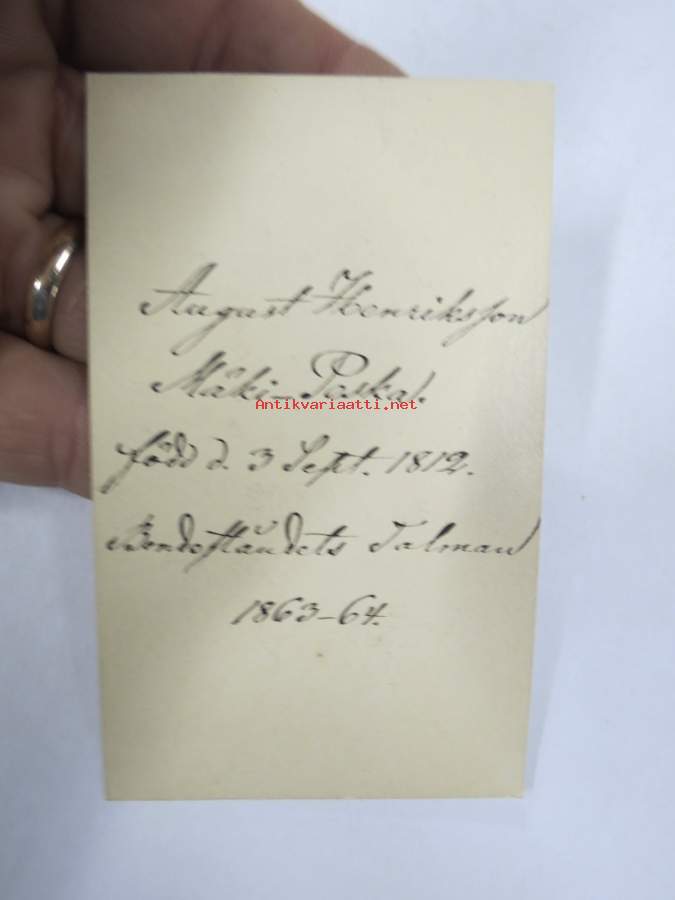 August Henriksson
Mäki-Paska.
Antikvariaatti.net
född d. 3 Sept. 1812.
Bondeståndets Talman
1863-64.